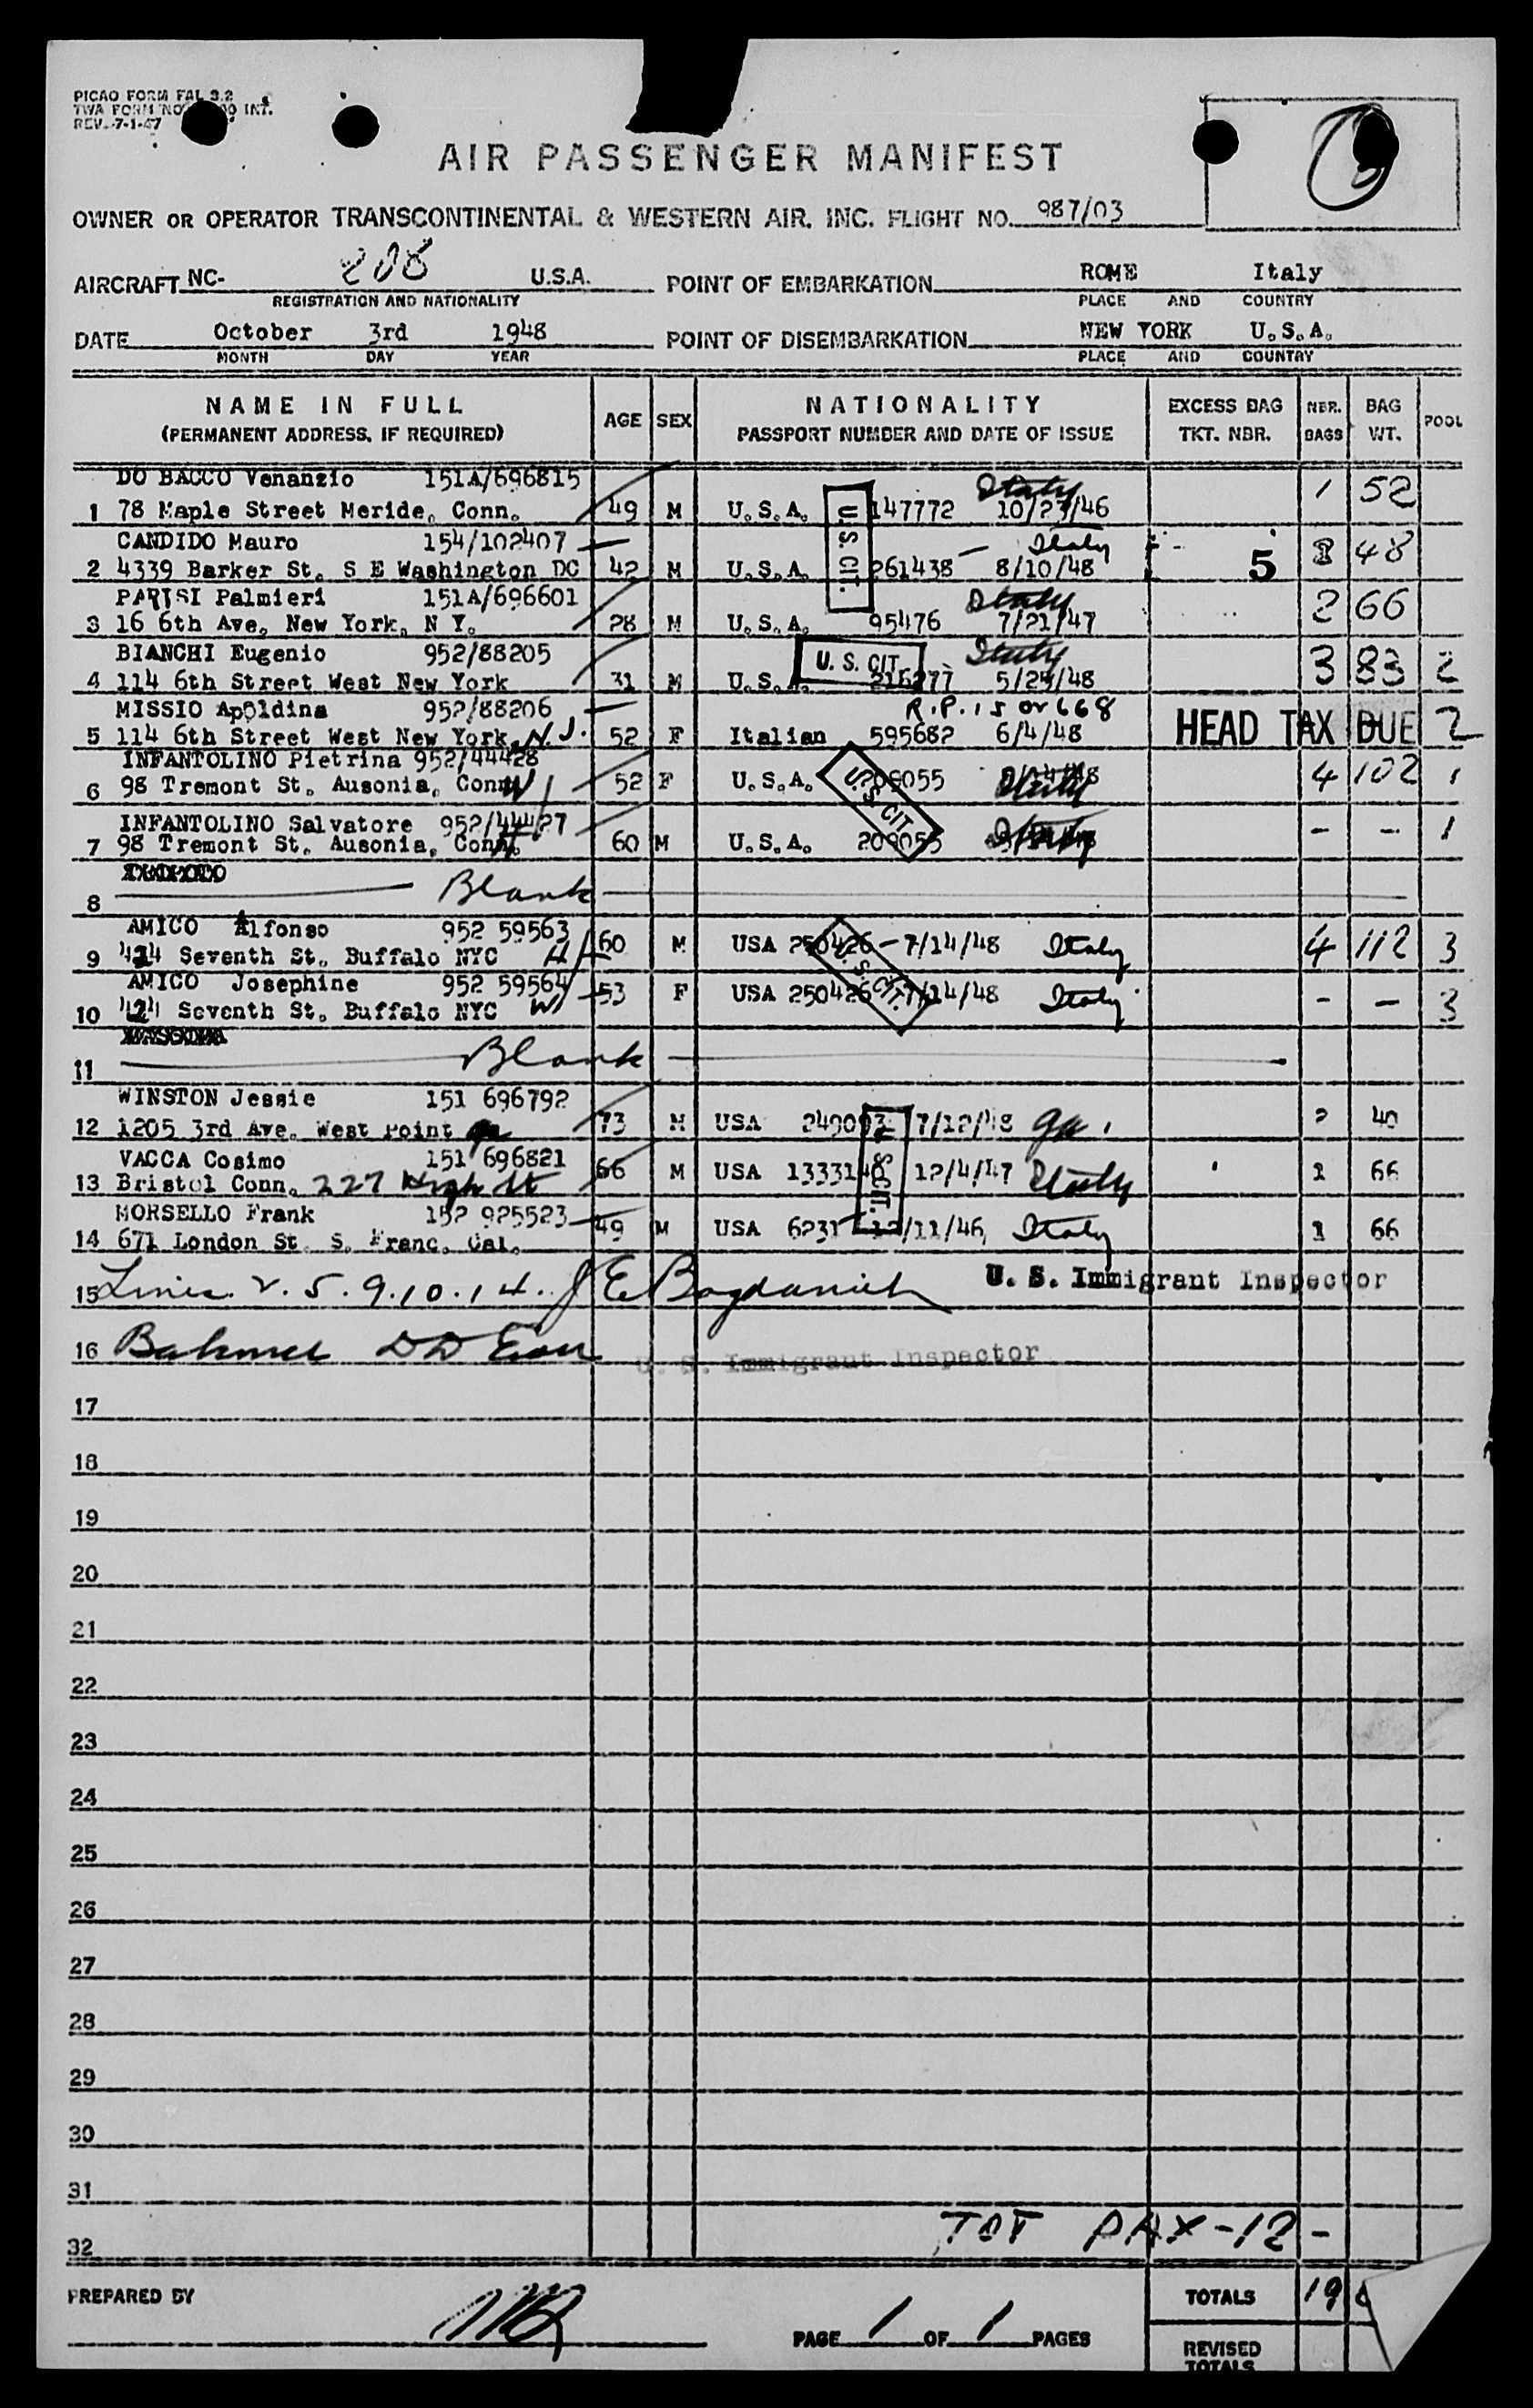 PICAO FORM FAL 3.2
TWA FORM NO. INT.
REV. 7-1-47
AIR PASSENGER MANIFEST
OWNER OR OPERATOR TRANSCONTINENTAL & WESTERN AIR. INC. FLIGHT NO. 987/03
AIRCRAFT NC- 208 U.S.A. POINT OF EMBARKATION ROME Italy
REGISTRATION AND NATIONALITY PLACE AND COUNTRY
DATE October 3rd 1948 POINT OF DISEMBARKATION NEW YORK U.S.A.
MONTH DAY YEAR PLACE AND COUNTRY
NAME IN FULL AGE SEX NATIONALITY EXCESS BAG NBR. BAG POOL
(PERMANENT ADDRESS, IF REQUIRED) PASSPORT NUMBER AND DATE OF ISSUE TKT. NBR. BAGS WT.
DO BACCO Venanzio 151A/696815 Italy 1 52
1 78 Maple Street Meride, Conn. 49 M U.S.A. 147772 10/23/46
U.S. CIT.
CANDIDO Mauro 154/102407 Italy 48
2 4339 Barker St. S E Washington DC 42 M U.S.A. 261438 8/10/48 5
PARISI Palmieri 151A/696601 Italy 2 66
3 16 6th Ave, New York, N Y. 28 M U.S.A. 95476 7/21/47
BIANCHI Eugenio 952/88205 U. S. CIT. Italy 3 83 2
4 114 6th Street West New York 31 M U.S.A. 5/25/48
MISSIO Apoldina 952/88206 R.P. 15 or 668 HEAD TAX DUE 2
5 114 6th Street West New York, N.J. 52 F Italian 595682 6/4/48
INFANTOLINO Pietrina 952/44428
6 98 Tremont St. Ausonia, Conn. W 52 F U.S.A. 209055 Italy 4 102 1
U.S. CIT
INFANTOLINO Salvatore 952/44427
7 98 Tremont St. Ausonia, Conn. H 60 M U.S.A. 209055 Italy - - 1
8 Blank
AMICO Alfonso 952 59563
9 424 Seventh St. Buffalo NYC H 60 M USA 250426 - 7/14/48 Italy 4 112 3
U.S. CIT.
AMICO Josephine 952 59564
10 424 Seventh St. Buffalo NYC W 53 F USA 250426 7/14/48 Italy - - 3
11 Blank
WINSTON Jessie 151 696792
12 1205 3rd Ave. West Point Ga 73 M USA 249093 7/12/48 Ga. 2 40
U.S. CIT.
VACCA Cosimo 151 696821
13 Bristol Conn. 227 High St 66 M USA 12/4/47 Italy 1 66
MORSELLO Frank 152 925523
14 671 London St. S. Franc. Cal. 49 M USA 6231 12/11/46 Italy 1 66
15 Lines 2. 5. 9. 10. 14. J E Bogdanich U. S. Immigrant Inspector
16 U. S. Immigrant Inspector
17
18
19
20
21
22
23
24
25
26
27
28
29
30
31
32 TOT PAX-12-
PREPARED BY PAGE 1 OF 1 PAGES TOTALS 19
REVISED
TOTALS